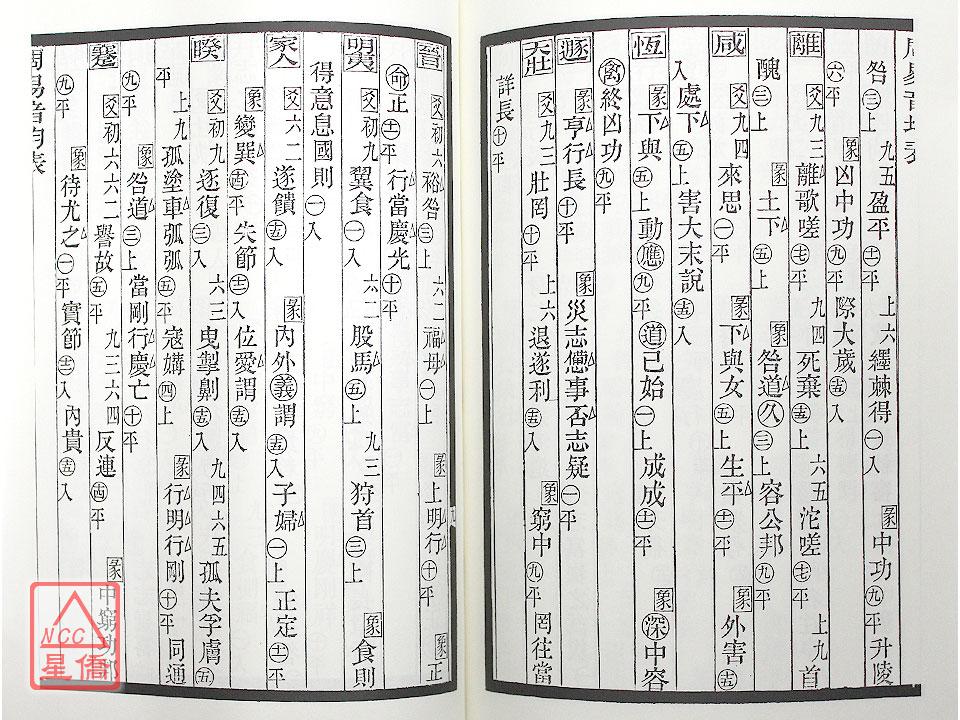 咎㊂上 九五盈平⑪平 上六纆棘得㊀入 象中功㊈平 升陵
六㊉平 象凶中功㊈平 際大歲⑮入
離 爻九三離歌嗟⑰平 九四死棄⑮上 六五沱嗟⑰平 上九首
醜㊂上 象土下㊄上 象咎道久㊂上 容公邦㊈平
咸 爻九四來思㊀平 象下與女㊄上 生平⑪平 象外害⑮
入 處下㊄上 害大末說⑮入
恆 象下與㊄上 動應㊈平 道已始㊀上 成成⑪平 象深中容
禽終凶功㊈平
遯 象亨行長㊉平 象災志憊事否志疑㊀平
大壯 爻九三壯罔㊉平 上六退遂利⑮入 象窮中㊈平 罔往當
詳長㊉平
晉 爻初六裕咎㊂上 六二福母㊀上 象上明行㊉平 象正
命正⑪平 行當慶光㊉平
明夷 爻初九翼食㊀入 六二股馬㊄上 九三狩首㊂上 象食則
得意息國則㊀入
家人 爻六二遂饋⑮入 象內外義謂⑮入 子婦㊀上 正定⑪平
象變巽⑭平 失節⑫入 位愛謂⑮入
睽 爻初九逐復㊂入 六三曳掣劓⑮入 九四六五孤夫孚膚㊄
平 上九孤塗車弧弧㊄平 寇媾㊃上 象行明行剛㊉平 同通
㊈平 象咎道㊂上 當剛行慶亡㊉平
蹇 爻初六六二譽故㊄平 九三六四反連⑭平 象中窮功邦
㊈平 象待尤之㊀平 實節⑫入 內貴⑮入
周易音均表
NCC
星僑